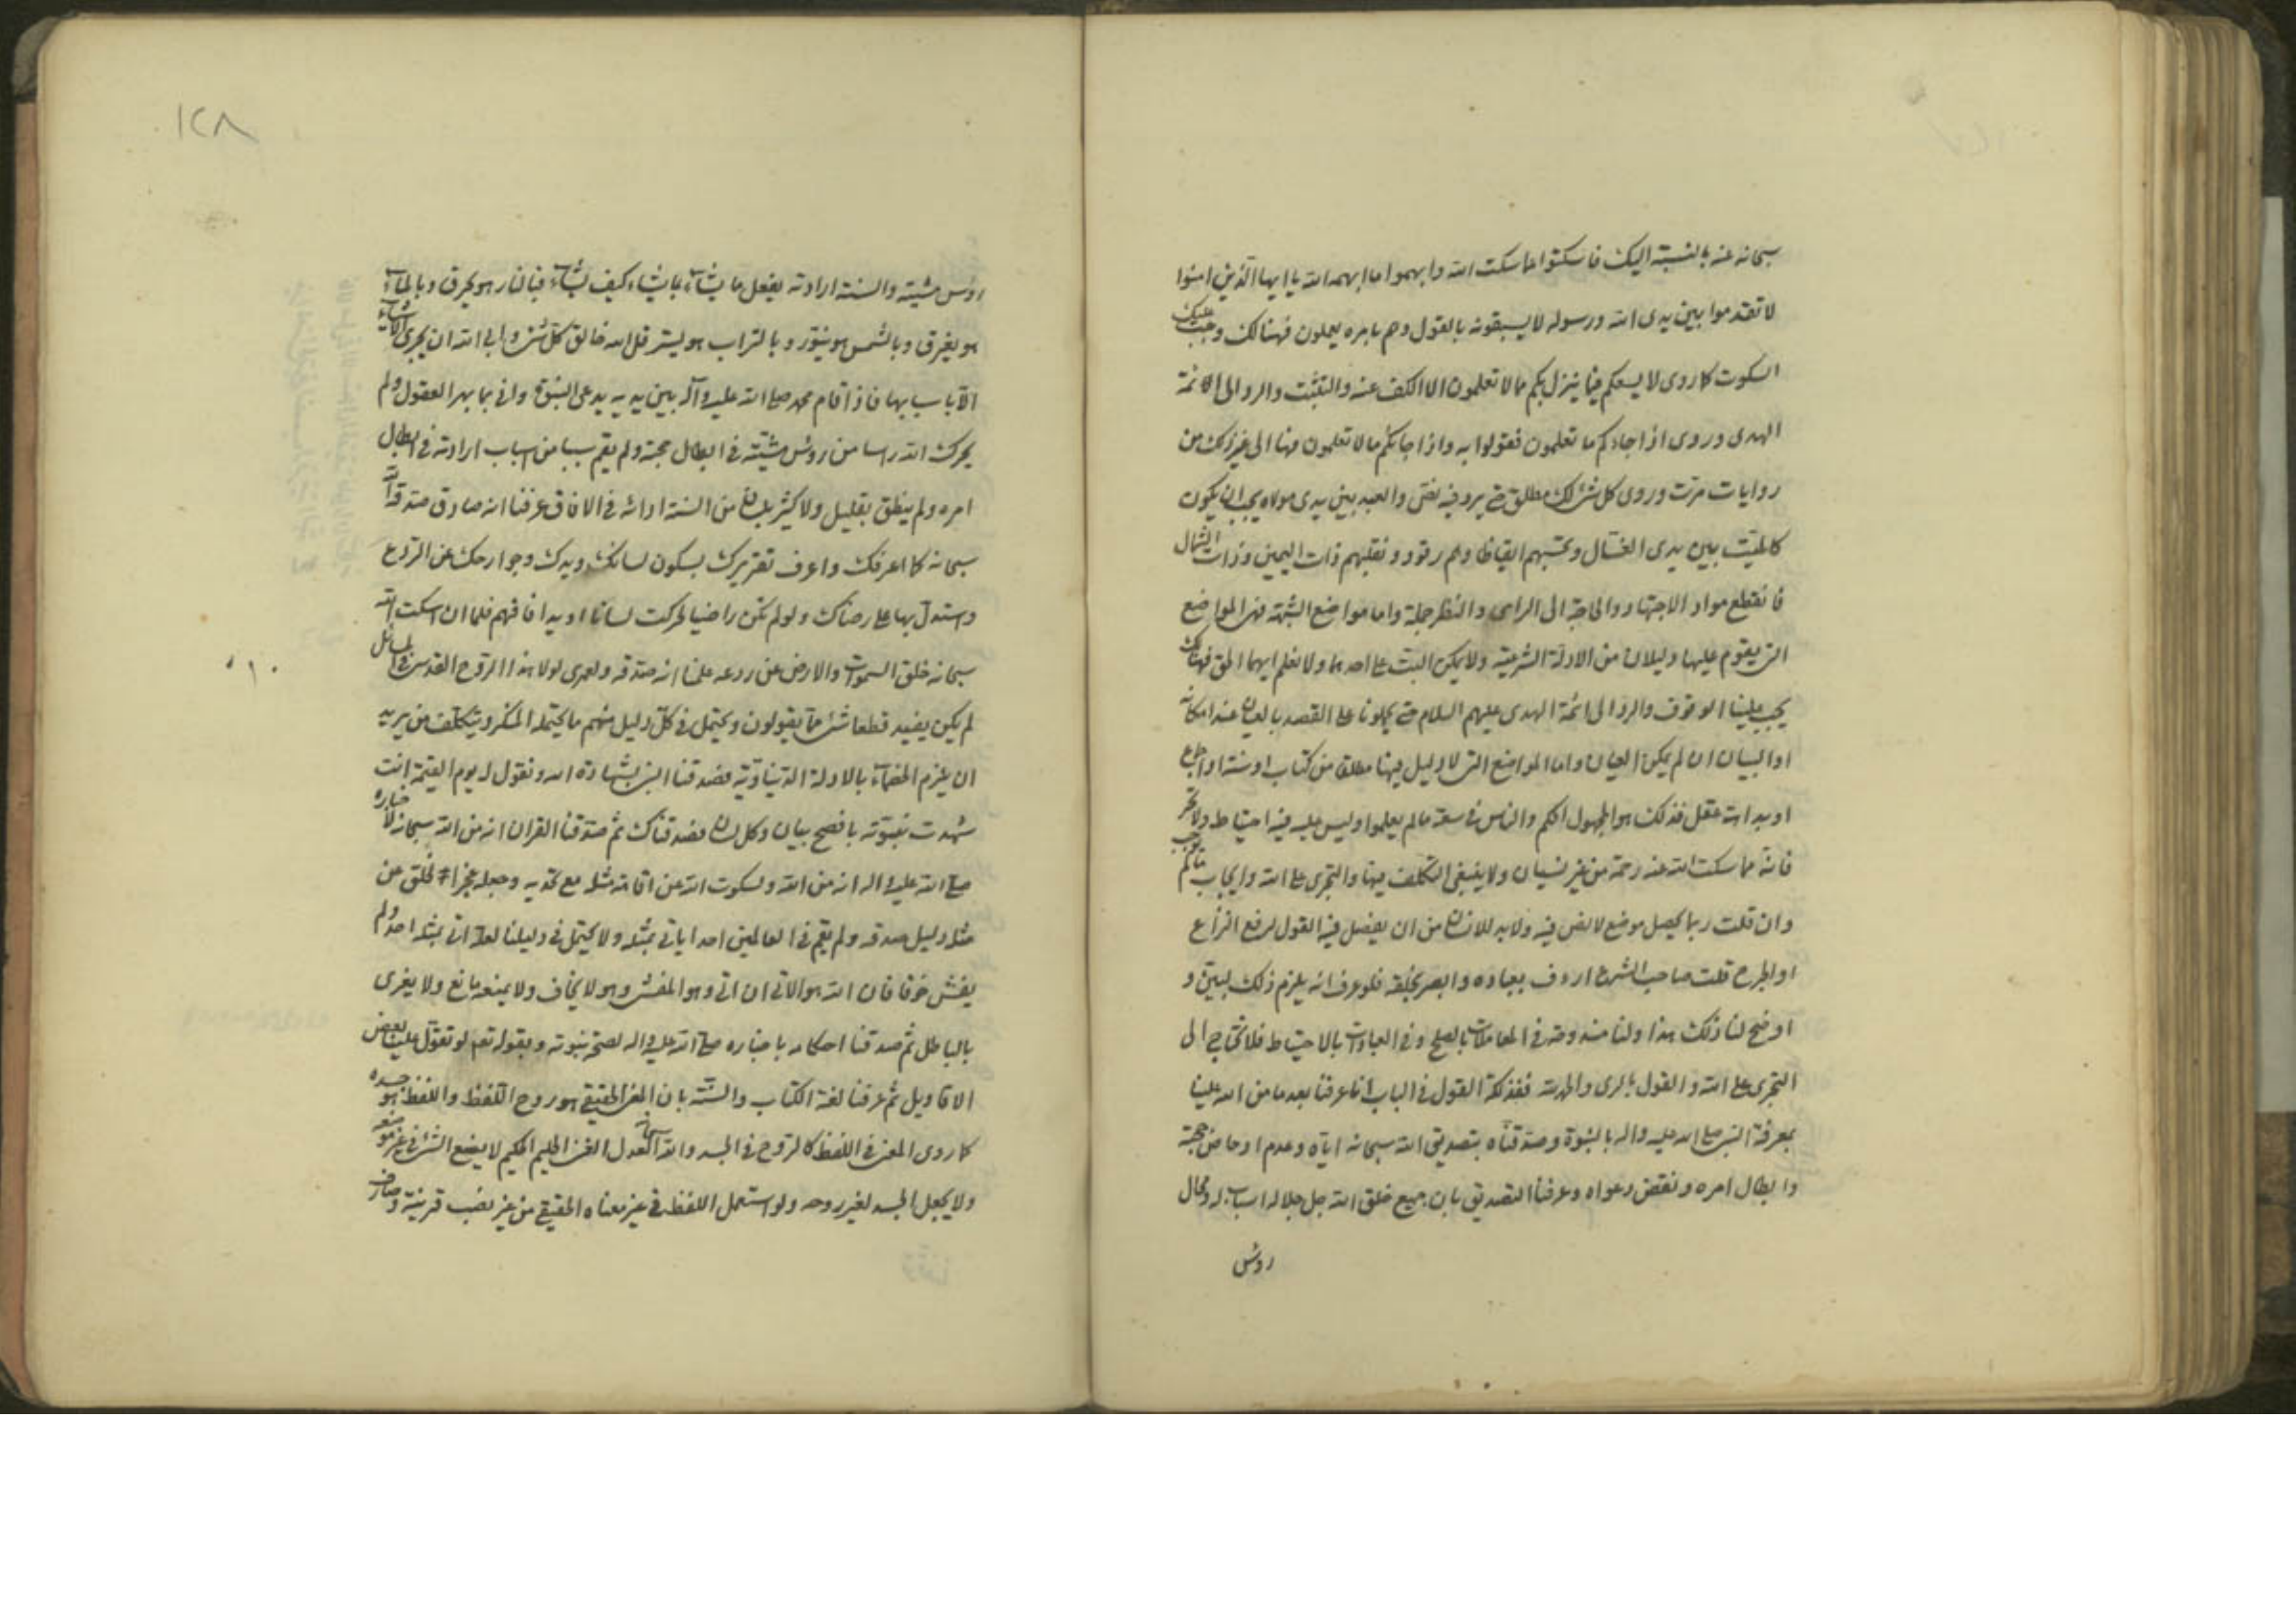 سبحانه عنه بالنسبة اليك فاسكتوا عما سكت الله وابهموا ما ابهمه الله يا ايها الذين امنوا
لا تقدموا بين يدى الله ورسوله لا يسبقونه بالقول وهم بامره يعملون فهنالك وجب عليك
السكوت كما روى لا يسعكم فيما ينزل بكم مما لا تعلمون الا الكف عنه والتثبت والرد الى الائمة
الهدى وروى اذا جاءكم ما تعلمون فقولوا به واذا جاءكم ما لا تعلمون فها الى غير ذلك من
روايات مرت وروى كل شئ لك مطلق حتى يرد فيه نص والعبد بين يدى مولاه يجب ان يكون
كالميت بين يدى الغسال وتحسبهم ايقاظا وهم رقود ونقلبهم ذات اليمين وذات الشمال
فانقطع مواد الاجتهاد والحاجة الى الراى والنظر جملة واما مواضع الشبهة فهى المواضع
التى يقوم عليها دليلان من الادلة الشرعية ولا يمكن البت على احدهما ولا نعلم ايهما الحق فهناك
يجب علينا الوقوف والرد الى ائمة الهدى عليهم السلام حتى يحملونا على القصد بالعيان عند امكانه
او البيان ان لم يمكن العيان واما المواضع التى لا دليل فيها مطلق من كتاب او سنة او اجماع
او بداهة عقل فذلك هو المجهول الحكم والناس فى سعة ما لم يعلموا وليس عليه فيه احتياط ولا تحر
فانه مما سكت الله عنه رحمة من غير نسيان ولا ينبغى التكلف فيها والتجرى على الله وايجاب ما لم يوجب
وان قلت ربما يحصل موضع لا نص فيه ولابد للانسان من ان يفصل فيه القول لرفع النزاع
او الحرج قلت صاحب الشرع ارءف بعباده وابصر بخلقه فلو عرف انه يلزم ذلك لبين و
اوضح لنا ذلك هذا ولنا مندوحة فى المعاملات بالصلح وفى العبادات بالاحتياط فلا نحتاج الى
التجرى على الله والقول بالرى والمرية ففذلكة القول فى الباب انا عرفنا بعد ما من الله علينا
بمعرفة النبى صلى الله عليه واله بالنبوة وصدقناه بتصديق الله سبحانه اياه وعدم ادحاض حجته
وابطال امره ونقض دعواه وعرفنا التصديق بان جميع خلق الله جل جلاله اسباب له ومحال
روس
١٢٨
روس مشيته والسنة ارادته يفعل ما يشاء بما يشاء كيف يشاء فبالنار هو يحرق وبالماء
هو يغرق وبالشمس هو ينور وبالتراب هو يستر قل الله خالق كل شئ وابى الله ان يجرى الاشياء
الا باسبابها فاذ اقام محمد صلى الله عليه وآله بين يديه يدعى النبوة واتى بما بهر العقول ولم
يحرك الله راسا من روس مشيته فى ابطال حجته ولم يقم سببا من اسباب ارادته فى ابطال
امره ولم ينطق بقليل ولا كثير بلسان من السنة ادائه فى الافاق عرفنا انه صادق صدقه الله
سبحانه كما اعرفك واعرف تقريرك بسكون لسانك ويدك وجوارحك عن الردع
واستدل بها على رضاك ولو لم تكن راضيا لحركت لسانا او يدا فافهم فلما ان اسكت الله
سبحانه خلق السموات والارض عن ردعه علمنا انه صدقه ولعمرى لولا هذا الروح القدسى فى المسائل
لم يكن يفيد قطعا شئ مما يقولون ويحتمل فى كل دليل منهم ما يحتمله المنكر ويتكلف من يريد
ان يلزم الخصماء بالادلة الدنياوية فصدقنا النبى بشهادة الله ونقول له يوم القيمة انت
شهدت بنبوته بافصح بيان وكل لسان فصدقناك ثم صدقنا القران انه من الله سبحانه لاخباره
صلى الله عليه واله انه من الله ولسكوت الله عن اقامة مثله مع تحديه وجعله عجز الخلق عن
مثله دليل صدقه ولم يقم فى العالمين احد ياتى بمثله ولا يحتمل فى دليلنا لعله اتى بمثله احد ولم
يفش خوفا فان الله هو الاتى ان اتى وهو المفشى وهو لا يخاف ولا يمنعه مانع ولا يغرى
بالباطل ثم صدقنا احكامه باخباره صلى الله عليه واله لصحة نبوته وبقوله تعم لو تقول علينا بعض
الاقاويل ثم عرفنا لغة الكتاب والسنة بان المعنى الحقيقى هو روح اللفظ واللفظ هو جسده
كما روى المعنى فى اللفظ كالروح فى الجسد والله سبحانه العدل الغنى الحليم الحكيم لا يضع الشئ فى غير موضعه
ولا يجعل الجسد لغير روحه ولو استعمل اللفظ فى غير معناه الحقيقى من غير نصب قرينة